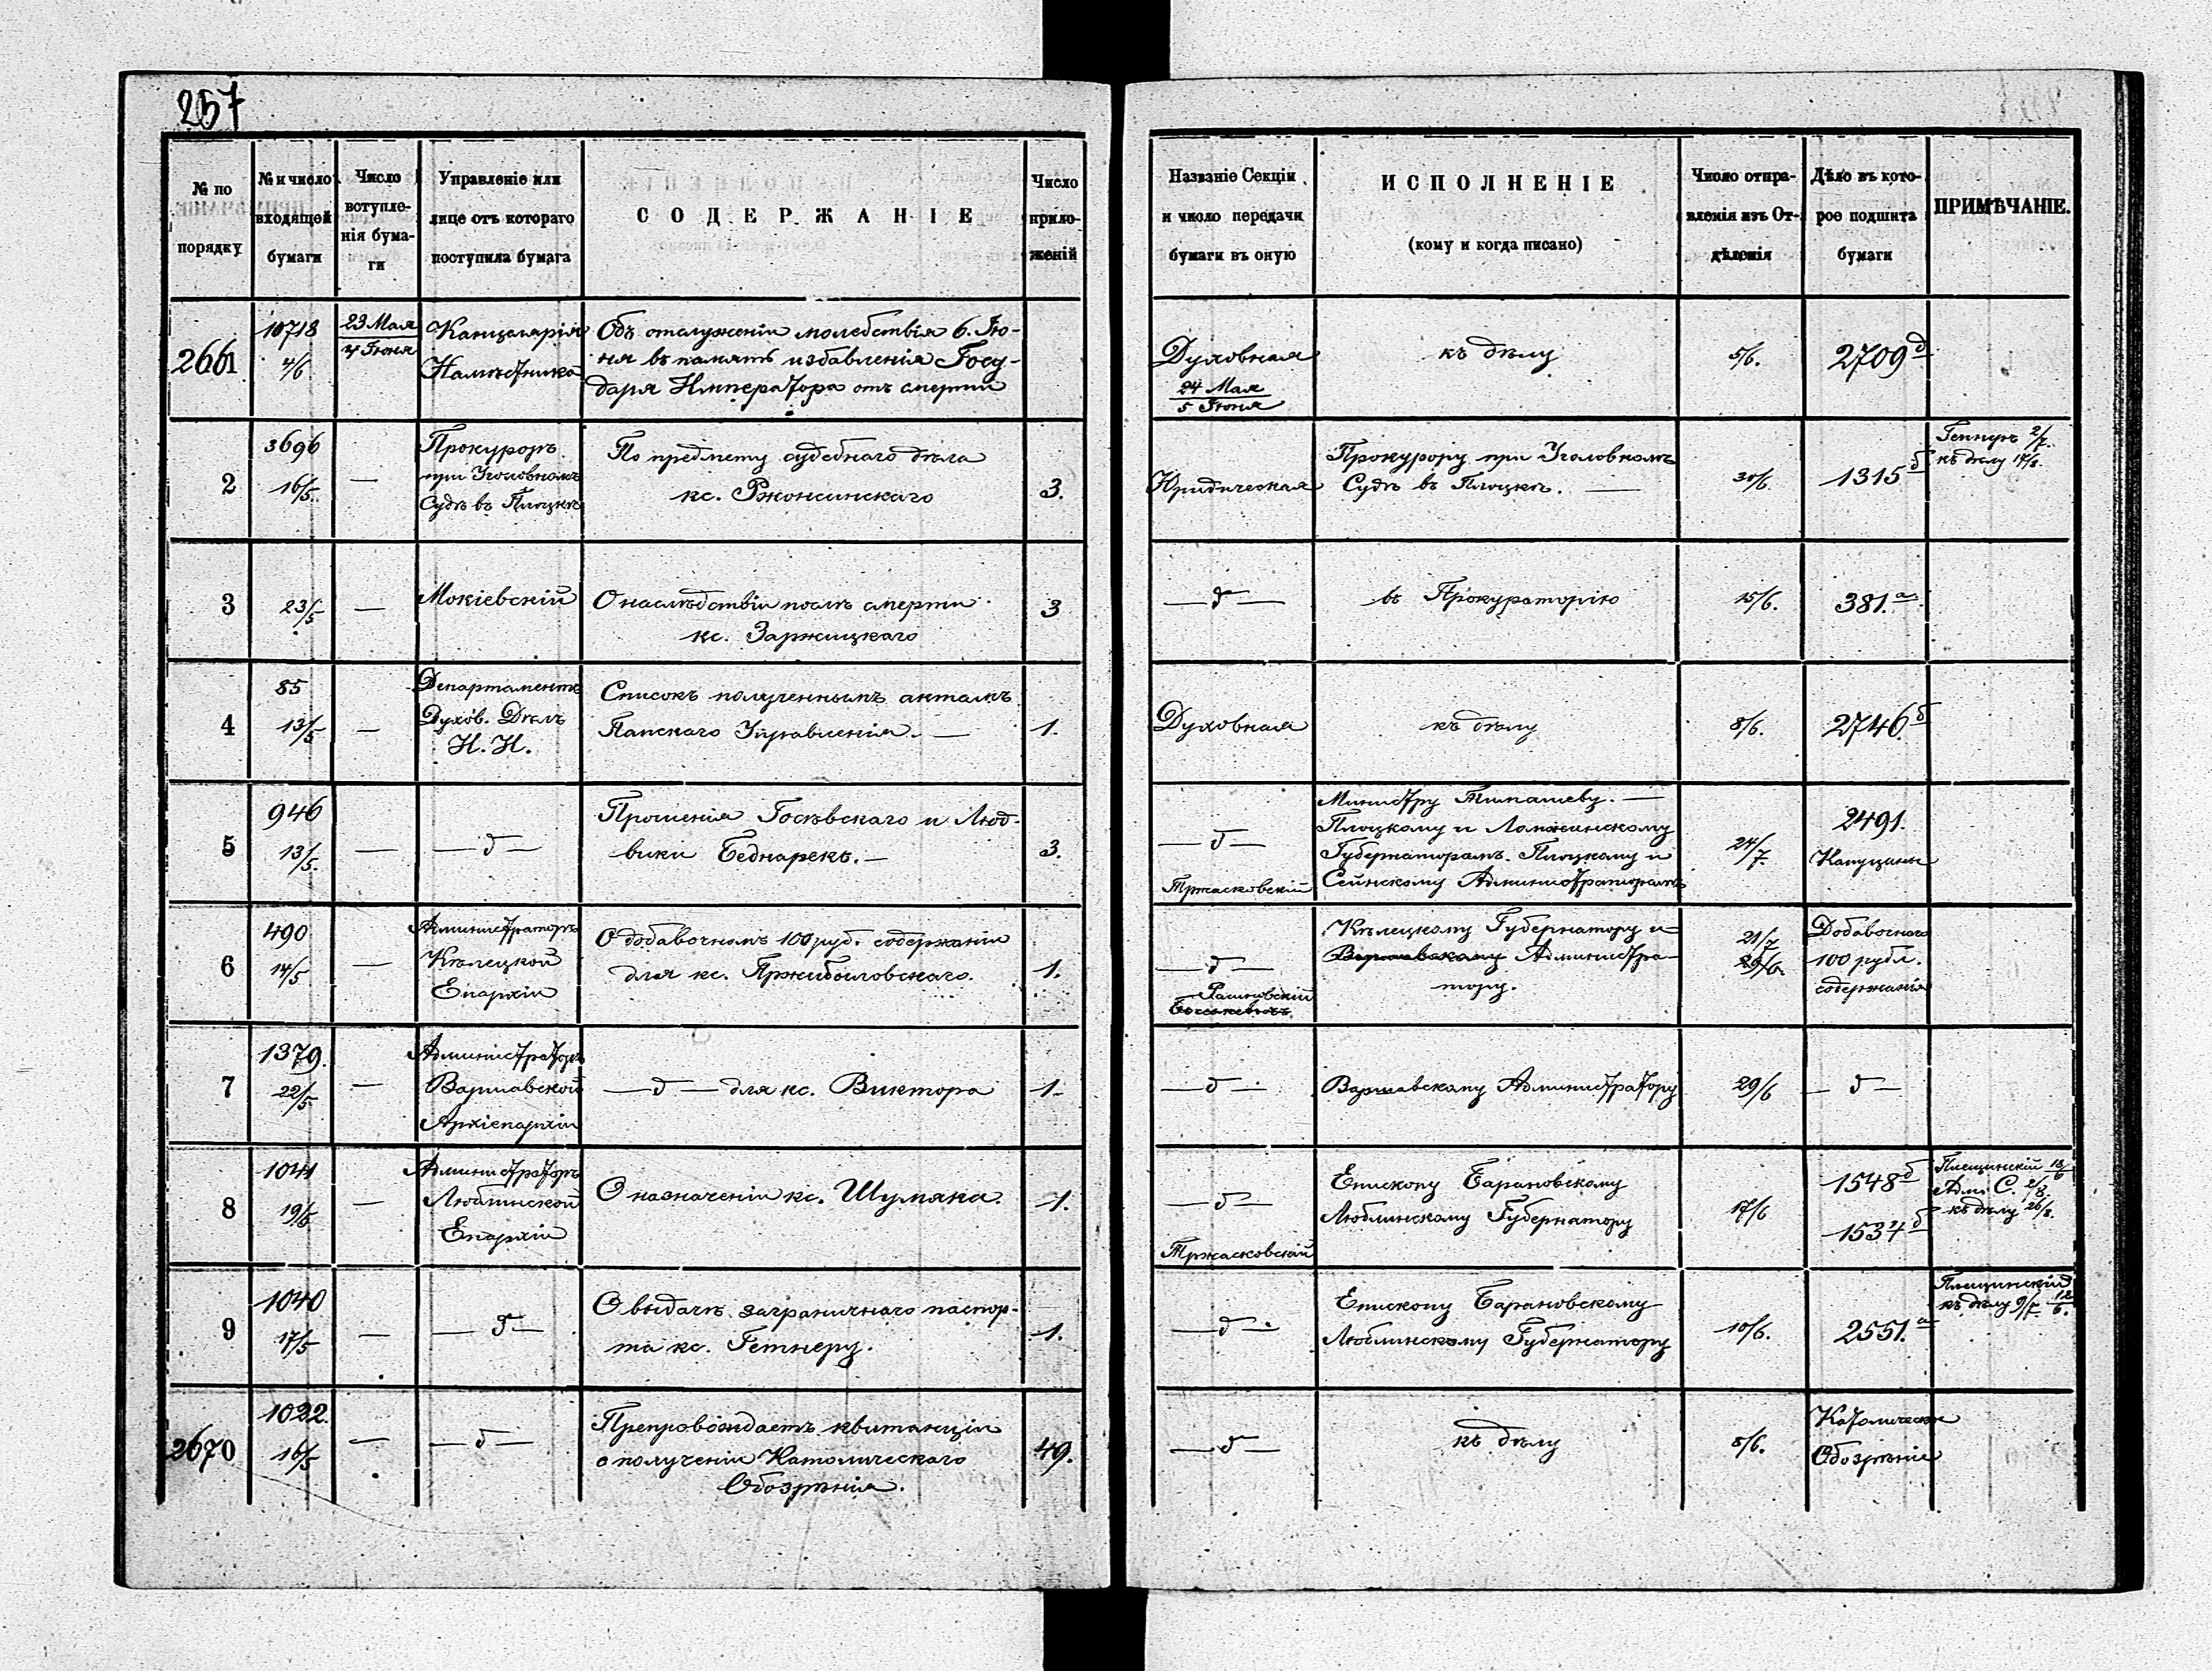 257
№ по порядку
№ и число входящей бумаги
Число вступленія бумаги
Управленіе или лице отъ котораго поступила бумага
СОДЕРЖАНІЕ
Число приложеній
Названіе Секціи и число передачи бумаги въ оную
ИСПОЛНЕНІЕ
(кому и когда писано)
Число отправленія изъ Отдѣленія
Дѣло въ которое подшита бумаги
ПРИМѢЧАНІЕ.
2661
10718
4/6
23 Мая
4 Іюня
Канцелярія
Намѣстника
Объ отслуженіи молебствія 6. Ію-
ня въ память избавленія Госу-
даря Императора отъ смерти
Духовная
24 Мая
5 Іюня
къ дѣлу
5/6.
2709 д
2
3696
16/5.
—
Прокуроръ
при Уголовномъ
Судѣ въ Плоцкѣ
По предмету судебнаго дѣла
кс. Ржонсинскаго
3.
Юридическая
Прокурору при Уголовномъ
Судѣ въ Плоцкѣ. —
30/6.
1315 б
2/7.
къ дѣлу 17/8.
3
23/5
—
Мокіевскій
О наслѣдствіи послѣ смерти
кс. Заржицкаго
3
— д —
въ Прокураторію
15/6.
381. а
4
85
13/5
—
Департаментъ
Духов. Дѣлъ
И. И.
Списокъ полученнымъ актамъ
Папскаго Управленія. —
1.
Духовная
къ дѣлу
8/6.
2746. б
5
946
13/5.
—
— д —
Прошенія Госѣвскаго и Люд-
вики Беднарекъ. —
3.
— д —
Тржасковскій
Министру Тимашеву. —
Плоцкому и Ломжинскому
Губернаторамъ. Плоцкому и
Сейнскому Администраторамъ
24/7.
2491.
Капуцины
6
490
14/5
—
Администраторъ
Кѣлецкой
Епархіи
О добавочномъ 100 руб. содержаніи
для кс. Пржибыловскаго.
1.
— д —
Кѣлецкому Губернатору и
Варшавскому Администра-
тору.
21/7
29/6.
Добавочнаго
100 рубл.
содержанія
7
1379.
22/5
—
Администраторъ
Варшавской
Архіепархіи
— д — для кс. Виктора
1.
— д —
Варшавскому Администратору
29/6
— д —
8
1041
19/5
—
Администраторъ
Люблинской
Епархіи
О назначеніи кс. Шумяка.
1.
— д —
Тржасковскій
Епископу Барановскому
Люблинскому Губернатору
17/6
1548 б
1534 б
Плещинскій 18/6
Адм. С. 2/8.
къ дѣлу 26/8.
9
1040
17/5
—
— д —
О выдачѣ заграничнаго паспор-
та кс. Гетнеру.
1.
— д —
Епископу Барановскому
Люблинскому Губернатору
10/6.
2551. а
Плещинскій 12/6.
къ дѣлу 9/7.
2670
1022.
16/5
—
— д —
Препровождаетъ квитанціи
о полученіи Католическаго
Обозрѣнія.
49.
— д —
къ дѣлу
8/6.
Католическое
Обозрѣніе